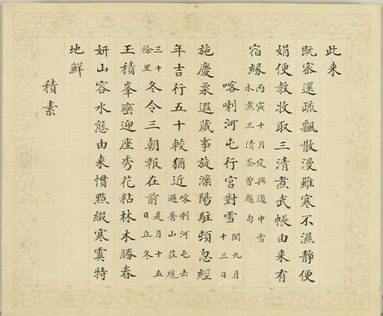 此来
既密還疏飄散漫雖寒不濕靜便
娟便教收取三清煮武帳由来有
宿緣 丙寅十月定興道中雪
水煮三清茶曾題句
喀喇河屯行宫對雪 閏九月
十三日
施慶菜遐蕆事旋灤陽駐頓忽經
年吉行五十較猶近 喀喇河屯去
避暑山莊境
三十
餘里 冬令三朝報在前 是月十五
日立冬
玉積峯巒迎座秀花粘林木勝春
妍山容水態由来慣點綴寒雲特
地鮮
積素